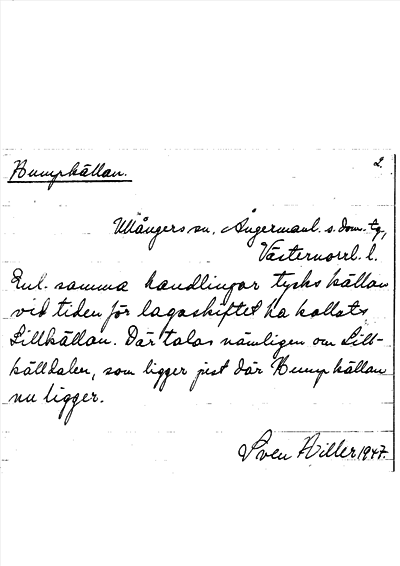 2.
Humpkällan.
Ullångers sn, Ångermanl. s. dom. tg,
Västernorrl. l.
Enl. samma handlingar tycks källan
vid tiden för lagaskiftet ha kallats
Lillkällan. Där talas nämligen om Lill-
källdalen, som ligger just där Humpkällan
nu ligger.
Sven Hiller 1947.